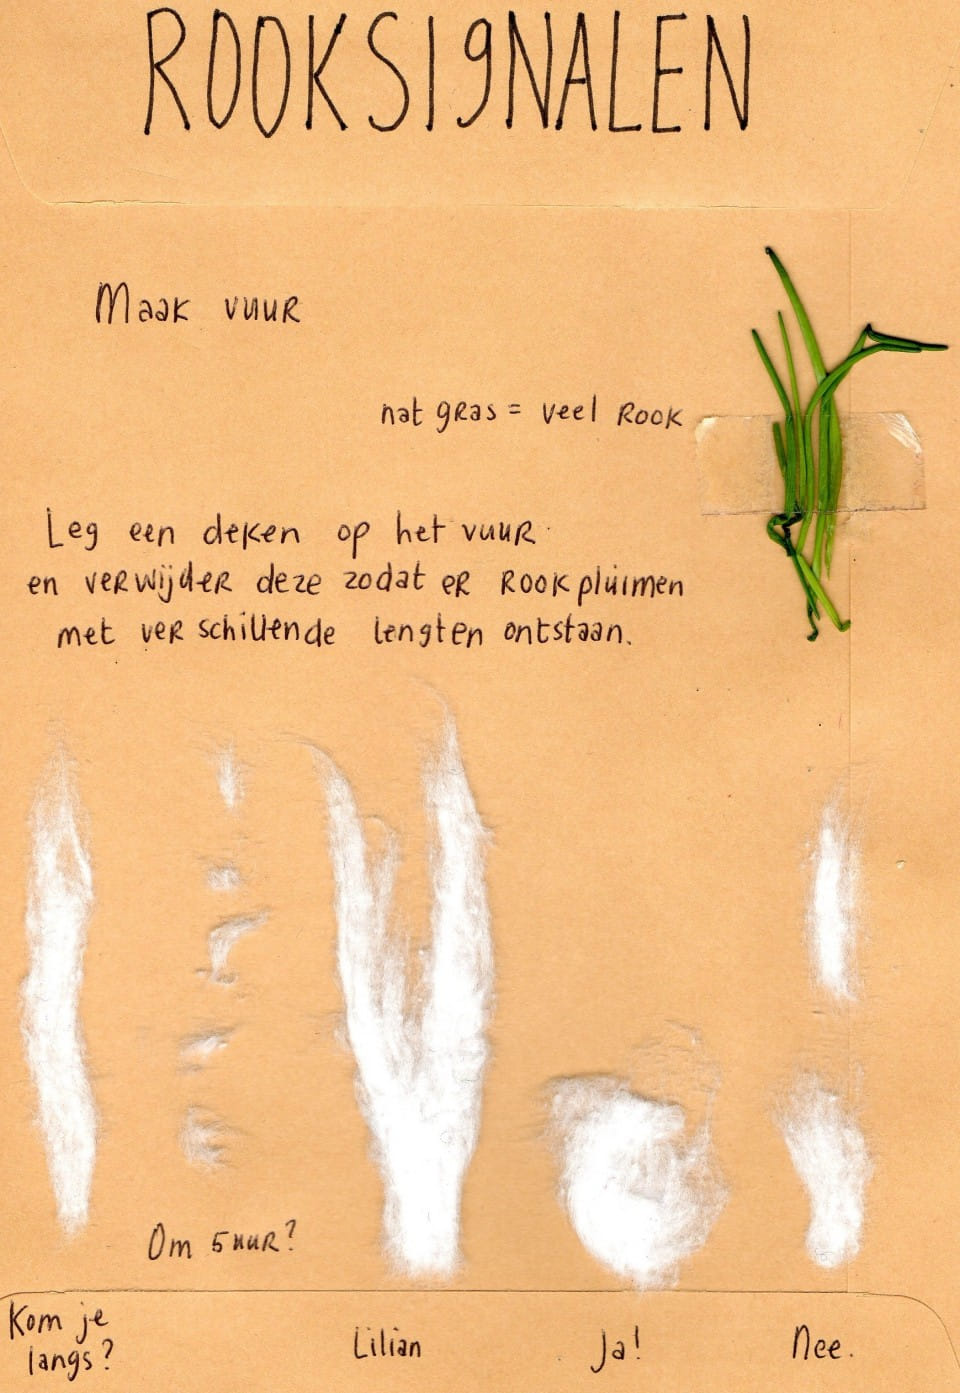 ROOKSIGNALEN
Maak vuur
nat gras = veel rook
Leg een deken op het vuur
en verwijder deze zodat er rookpluimen
met verschillende lengten ontstaan.
Om 5 uur?
Kom je
langs?
Lilian
Ja!
Nee.